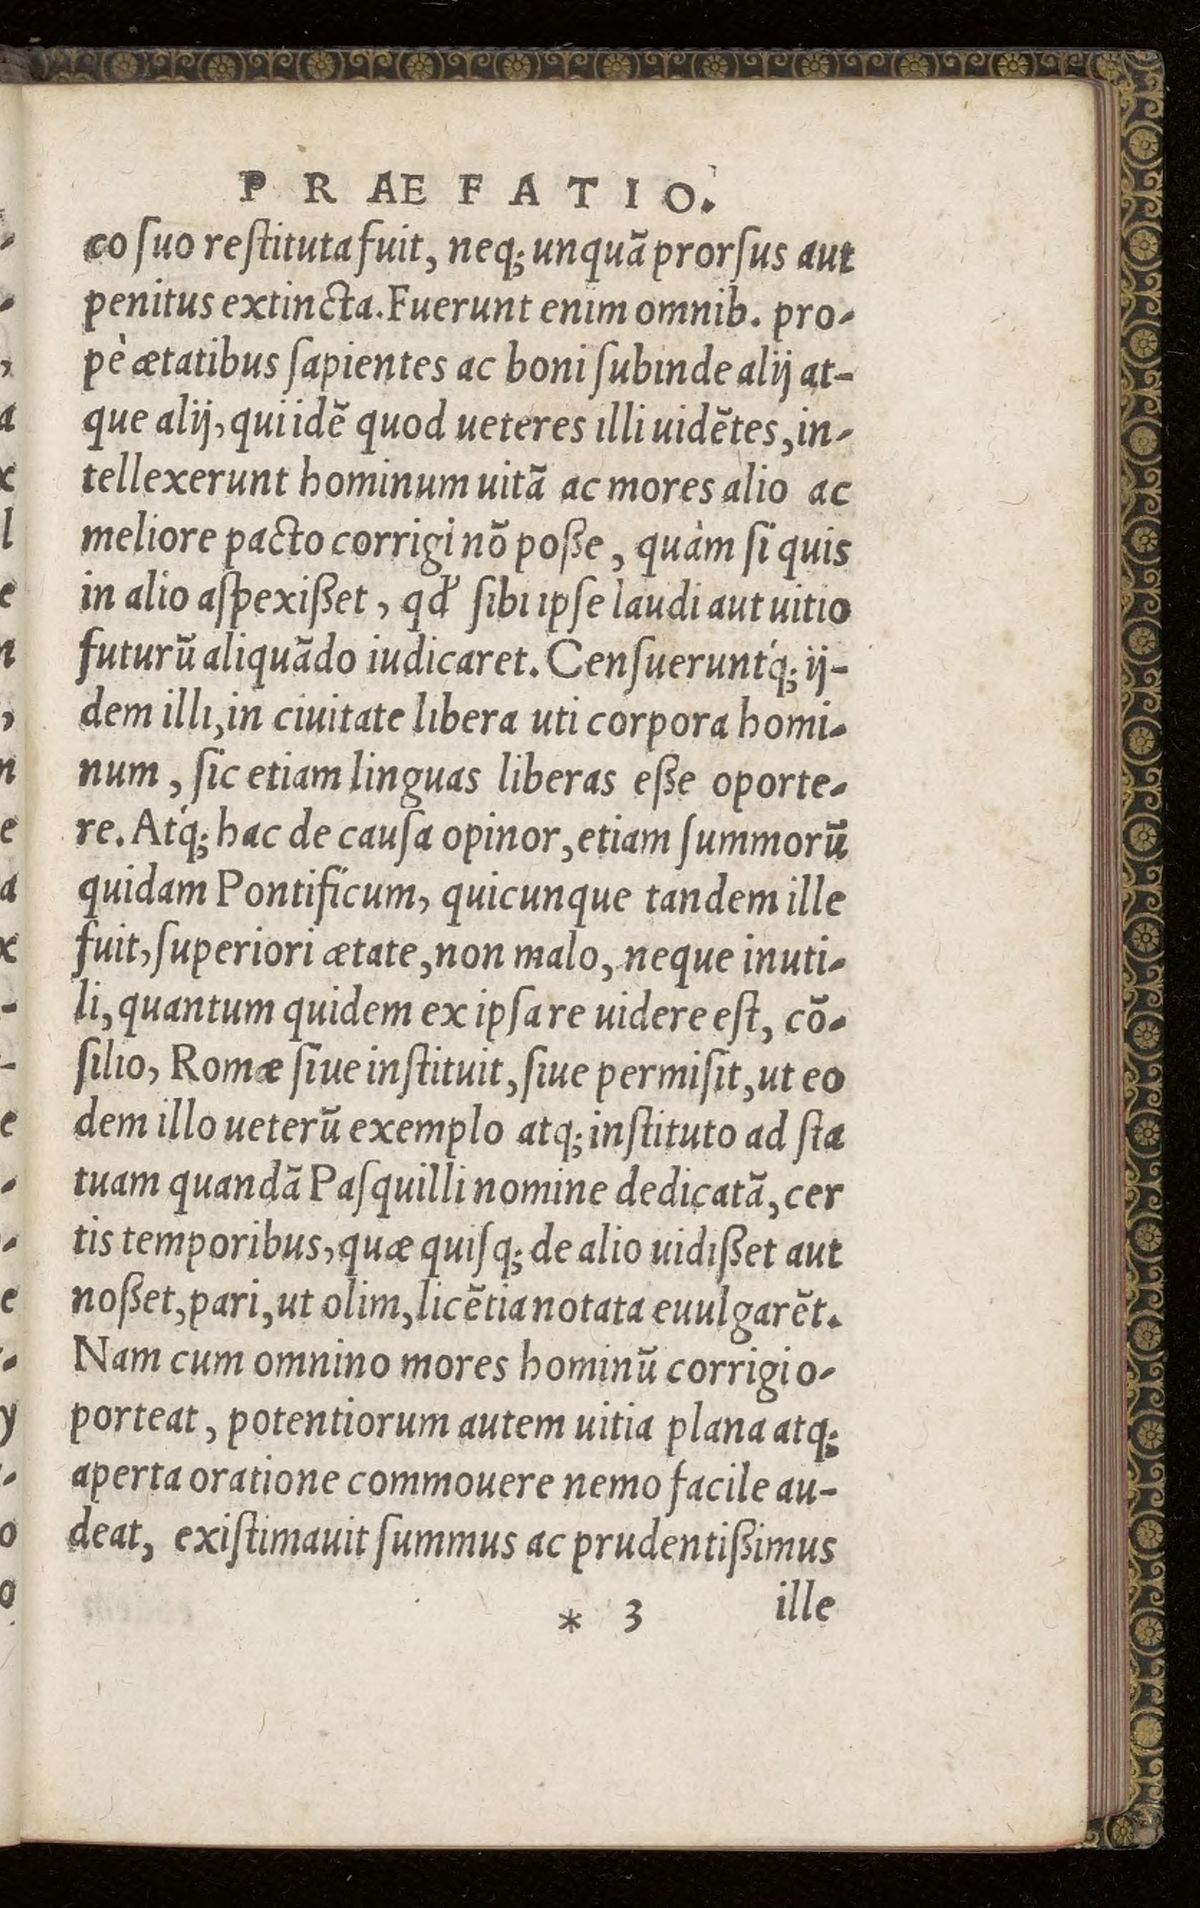 PRAEFATIO.
co ſuo reſtituta fuit, neq; unquā prorſus aut
penitus extincta. Fuerunt enim omnib. pro-
pè ætatibus ſapientes ac boni ſubinde alij at-
que alij, qui idē quod ueteres illi uidētes, in-
tellexerunt hominum uitā ac mores alio ac
meliore pacto corrigi nō poße, quàm ſi quis
in alio aſpexißet, qd' ſibi ipſe laudi aut uitio
futurū aliquādo iudicaret. Cenſueruntq́; ij-
dem illi, in ciuitate libera uti corpora homi-
num, ſic etiam linguas liberas eße oporte-
re. Atq́; hac de cauſa opinor, etiam ſummorū
quidam Pontificum, quicunque tandem ille
fuit, ſuperiori ætate, non malo, neque inuti-
li, quantum quidem ex ipſa re uidere eſt, cō-
ſilio, Romæ ſiue inſtituit, ſiue permiſit, ut eo
dem illo ueterū exemplo atq; inſtituto ad ſta
tuam quandā Paſquilli nomine dedicatā, cer
tis temporibus, quæ quiſq; de alio uidißet aut
noßet, pari, ut olim, licētia notata euulgarēt.
Nam cum omnino mores hominū corrigi o-
porteat, potentiorum autem uitia plana atq;
aperta oratione commouere nemo facile au-
deat, exiſtimauit ſummus ac prudentißimus
* 3 ille